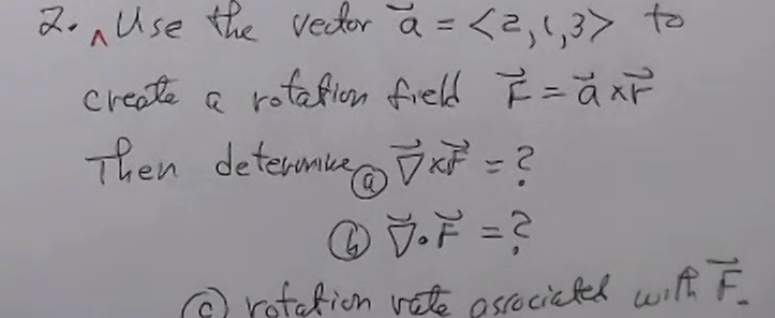 2. ^ Use the vector a⃗ = <2, 1, 3> to
create a rotation field F⃗ = a⃗ × r⃗
Then determine ⓐ ∇⃗ × F⃗ = ?
ⓑ ∇⃗ • F⃗ = ?
ⓒ rotation rate associated with F⃗.